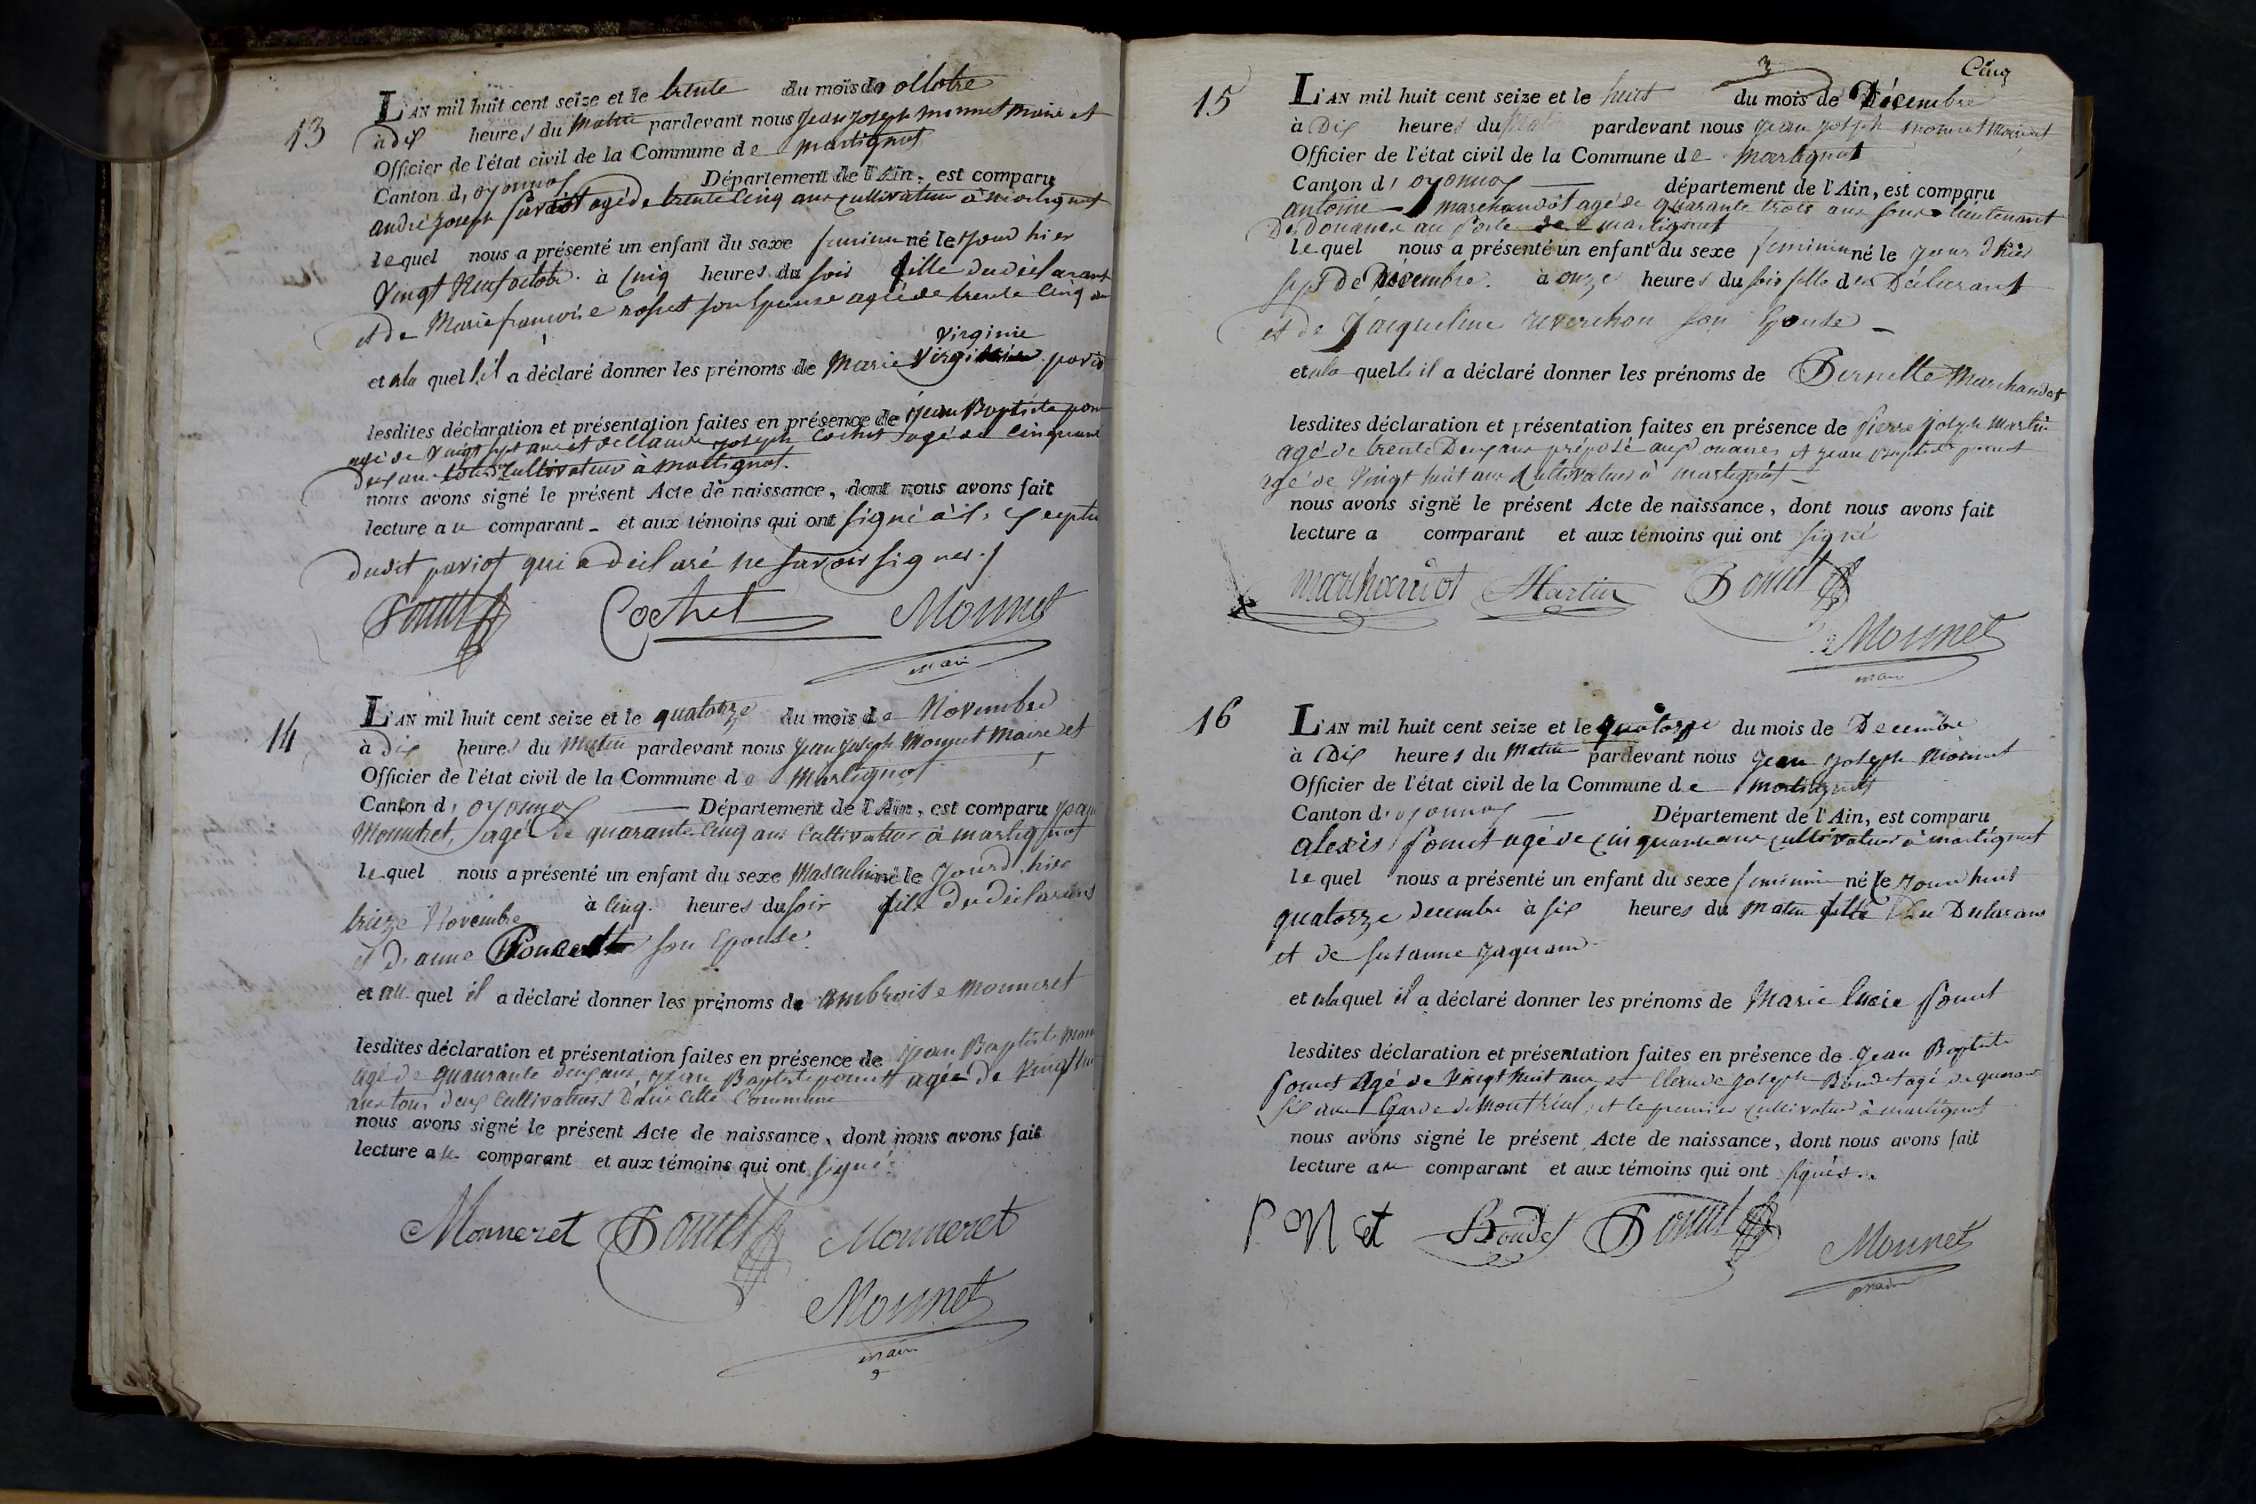 13
L'AN mil huit cent seize et le trente du mois de octobre
à dix heures du matin pardevant nous jean joseph monnet maire et
Officier de l'état civil de la Commune de martignat
Canton d, oyonnax Département de l'Ain, est comparu
andré joseph agé de trente cinq ans cultivateur à martignat
lequel nous a présenté un enfant du sexe feminin né le jour hier
vingt neuf octobre à cinq heures du soir fille du déclarant
et de Marie françoise son Epouse agée de trente cinq
virginie
et a la quelle il a déclaré donner les prénoms de Marie
lesdites déclaration et présentation faites en présence de jean Baptiste
agé de vingt sept ans et de Claude joseph Cochet agé de cinquante
deux ans tous cultivateurs à martignat.
nous avons signé le présent Acte de naissance, dont nous avons fait
lecture au comparant et aux témoins qui ont signé
dudit qui a déclaré ne savoir signer
Ponet Cochet Monnet
maire
14
L'AN mil huit cent seize et le quatorze du mois de Novembre
à dix heures du matin pardevant nous jean joseph Monnet Maire et
Officier de l'état civil de la Commune de Martignat
Canton d, oyonnax Département de l'Ain, est comparu
Monneret, agé de quarante cinq ans Cultivateur à martignat
lequel nous a présenté un enfant du sexe Masculin né le jourd hier
treize Novembre à cinq heures du soir fils du déclarant
et d, anne son Epouse
et au quel il a déclaré donner les prénoms de ambroise Monneret
lesdites déclaration et présentation faites en présence de jean Baptiste
agé de quarante deux ans, jean Baptiste ponet agée de vingt
ans tous deux cultivateurs dans cette Commune
nous avons signé le présent Acte de naissance, dont nous avons fait
lecture au comparant et aux témoins qui ont signé
Monneret Ponet Monneret
Monnet
maire
Cinq
15
L'AN mil huit cent seize et le huit du mois de Décembre
à Dix heures du matin pardevant nous jean joseph monnet
Officier de l'état civil de la Commune de Martignat
Canton d, oyonnax département de l'Ain, est comparu
antoine marchandot agé de quarante trois ans sous lieutenant
Des douanes au Poste de martignat
lequel nous a présenté un enfant du sexe feminin né le jour d'hier
sept de Décembre à onze heures du soir fille du Déclarant
et de Jacqueline reverchon son Epouse
et a la quelle il a déclaré donner les prénoms de Pernette Marchandot
lesdites déclaration et présentation faites en présence de Pierre joseph Martin
agé de trente Deux ans préposé aux Douanes et jean Baptiste ponet
agé de vingt huit ans Cultivateur à martignat
nous avons signé le présent Acte de naissance, dont nous avons fait
lecture a comparant et aux témoins qui ont signé
marchandot Martin Ponet
Monnet
maire
16
L'AN mil huit cent seize et le quatorze du mois de Decembre
à Dix heures du matin pardevant nous jean joseph Monnet
Officier de l'état civil de la Commune de martignat
Canton d, oyonnax Département de l'Ain, est comparu
alexis ponet agé de cinquante ans cultivateur à martignat
lequel nous a présenté un enfant du sexe feminin né le jourd huit
quatorze decembre à six heures du matin fille Du Déclarant
et de suzanne
et a la quel il a déclaré donner les prénoms de Marie lucie Ponet
lesdites déclaration et présentation faites en présence de Jean Baptiste
Ponet agé de vingt huit ans et Claude joseph agé de quarante
six ans Garde et le premier cultivateur à martignat
nous avons signé le présent Acte de naissance, dont nous avons fait
lecture au comparant et aux témoins qui ont signés
P. ONet Ponet Monnet
maire